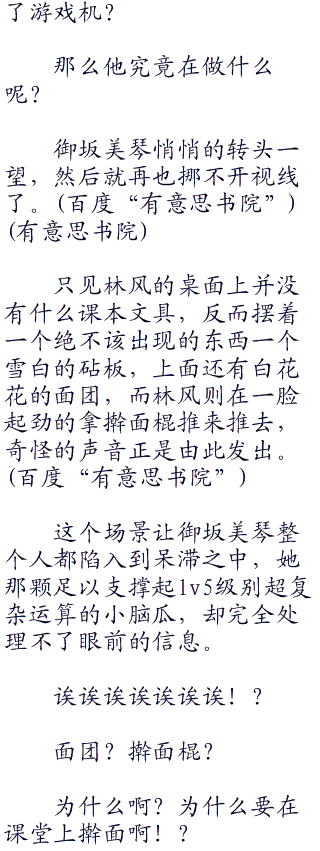 了游戏机？
那么他究竟在做什么
呢？
御坂美琴悄悄的转头一
望，然后就再也挪不开视线
了。(百度“有意思书院”)
(有意思书院)
只见林风的桌面上并没
有什么课本文具，反而摆着
一个绝不该出现的东西一个
雪白的砧板，上面还有白花
花的面团，而林风则在一脸
起劲的拿擀面棍推来推去，
奇怪的声音正是由此发出。
(百度“有意思书院”)
这个场景让御坂美琴整
个人都陷入到呆滞之中，她
那颗足以支撑起lv5级别超复
杂运算的小脑瓜，却完全处
理不了眼前的信息。
诶诶诶诶诶诶诶！？
面团？擀面棍？
为什么啊？为什么要在
课堂上擀面啊！？